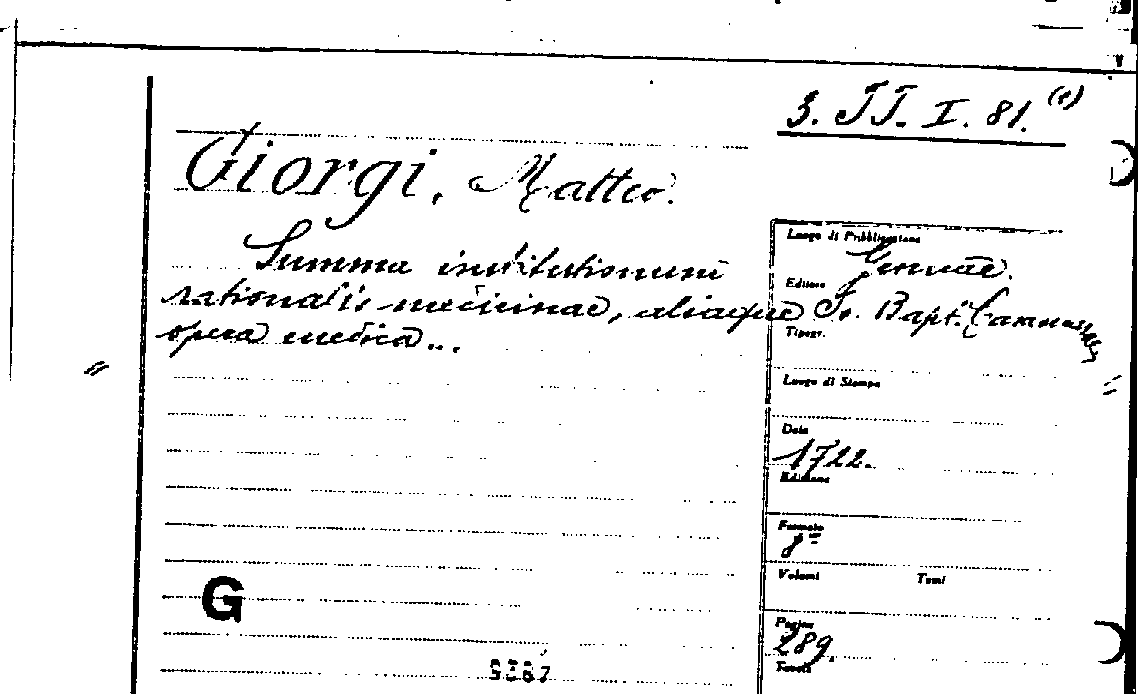 3. TT. I. 81. (1)
Giorgi, Matteo.
Summa institutionum
rationalis medicinae, aliaque
opera medica...
Luogo di Pubblicazione
Genuae.
Editore
Jo. Bapt.
Tipogr.
Luogo di Stampa
Data
1722.
Edizione
Formato
8º
Volumi Tomi
Pagine
289.
Tavole
G